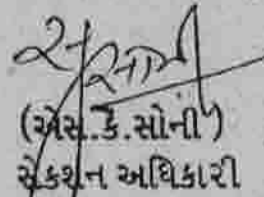 (એસ.કે.સોની)
સેકશન અધિકારી